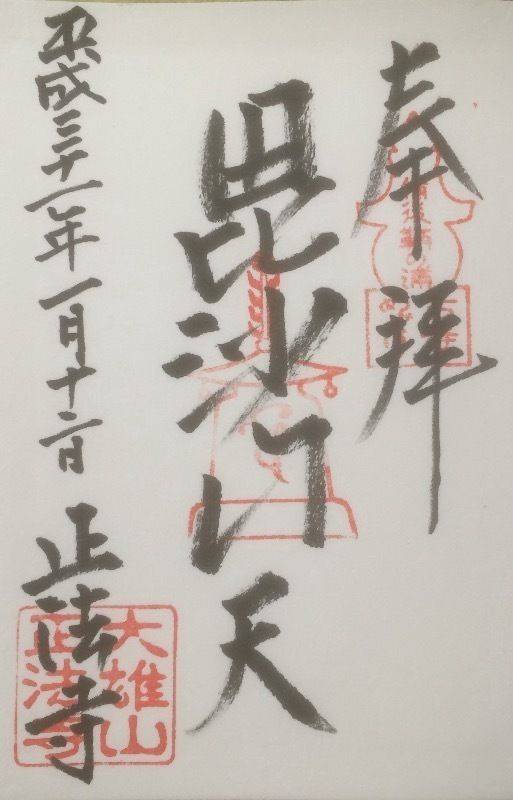 奉拝
毘沙门天
平成三十一年一月十二日 正法寺
大雄山
正法寺